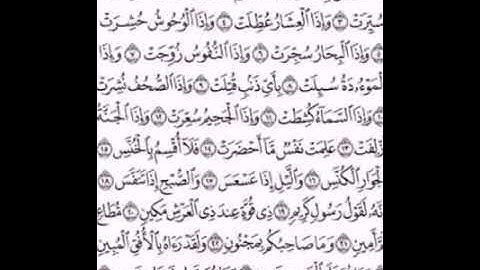 سُيِّرَتْ ٣ وَإِذَا ٱلْعِشَارُ عُطِّلَتْ ٤ وَإِذَا ٱلْوُحُوشُ حُشِرَتْ
٥ وَإِذَا ٱلْبِحَارُ سُجِّرَتْ ٦ وَإِذَا ٱلنُّفُوسُ زُوِّجَتْ ٧ وَإِذَا
ٱلْمَوْءُۥدَةُ سُئِلَتْ ٨ بِأَيِّ ذَنۢبٍ قُتِلَتْ ٩ وَإِذَا ٱلصُّحُفُ نُشِرَتْ
١٠ وَإِذَا ٱلسَّمَآءُ كُشِطَتْ ١١ وَإِذَا ٱلْجَحِيمُ سُعِّرَتْ ١٢ وَإِذَا ٱلْجَنَّةُ
زْلِفَتْ ١٣ عَلِمَتْ نَفْسٌ مَّآ أَحْضَرَتْ ١٤ فَلَآ أُقْسِمُ بِٱلْخُنَّسِ ١٥
لْجَوَارِ ٱلْكُنَّسِ ١٦ وَٱلَّيْلِ إِذَا عَسْعَسَ ١٧ وَٱلصُّبْحِ إِذَا تَنَفَّسَ ١٨
نَّهُۥ لَقَوْلُ رَسُولٍ كَرِيمٍ ١٩ ذِى قُوَّةٍ عِندَ ذِى ٱلْعَرْشِ مَكِينٍ ٢٠ مُّطَاعٍ
مَّ أَمِينٍ ٢١ وَمَا صَاحِبُكُم بِمَجْنُونٍ ٢٢ وَلَقَدْ رَءَاهُ بِٱلْأُفُقِ ٱلْمُبِينِ